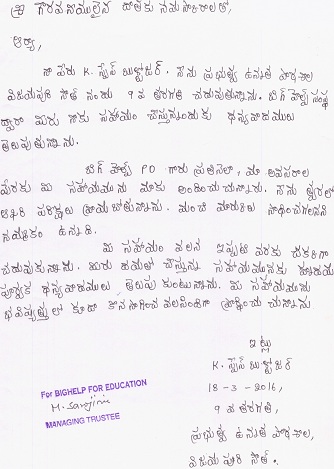 శ్రీ గౌరవనీయులైన దాతకు నమస్కారాలతో,
ఆర్యా,
నా పేరు K. స్టెఫెన్ నేను ప్రభుత్వ ఉన్నత పాఠశాల
విజయపురి సౌత్ నందు 9 వ తరగతి చదువుతున్నాను. బిగ్ హెల్ప్ సంస్థ
ద్వారా మీరు నాకు సహాయం చేస్తున్నందుకు ధన్యవాదములు
తెలుపుతున్నాను.
బిగ్ హెల్ప్ PO గారు ప్రతినెలా, మా అవసరాల
మేరకు మీ సహాయమును మాకు అందించుచున్నారు. నేను త్వరలో
ఆఖరి పరీక్షలు వ్రాయబోతున్నాను. మంచి మార్కులు సాధించగలనని
నమ్మకం ఉన్నది.
మీ సహాయం వలన ఇప్పటి వరకు చక్కగా
చదువుకున్నాను. మీరు దయతో చేస్తున్న సహాయమునకు హృదయ
పూర్వక ధన్యవాదములు తెలుపు కుంటున్నాను. మీ సహాయమును
భవిష్యత్తు లో కూడా కొనసాగించ వలసిందిగా ప్రార్థించు చున్నాను
ఇట్లు
K. స్టెఫెన్
18-3-2016,
9 వ తరగతి,
ప్రభుత్వ ఉన్నత పాఠశాల,
విజయ పురి సౌత్.
For BIGHELP FOR EDUCATION
M. Sarojini
MANAGING TRUSTEE